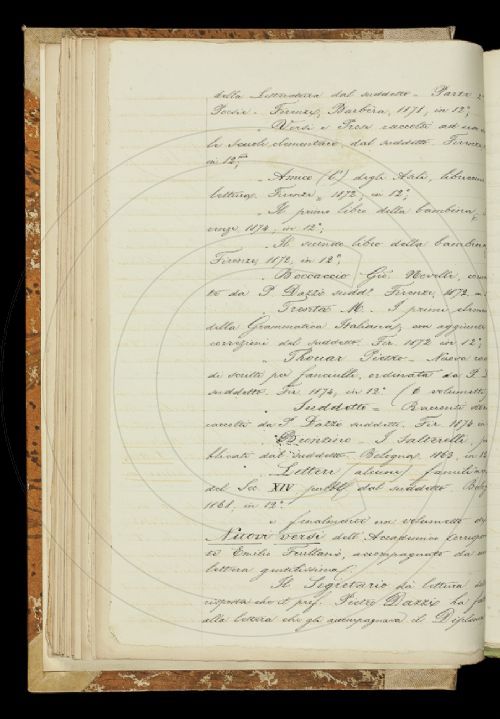 della Letteratura dal suddetto - Parte 2
Poesie - Firenze, Barbèra, 1871, in 12°;
Versi e Prose raccolti ad uso
le Scuole elementari, dal suddetto. Firenze
in 12°;
Amico (L') degli Asili,
lettura, Firenze, 1872, in 12°;
Il primo libro della bambina,
renze 1874, in 12°;
Il secondo libro della bambina
Firenze, 1872, in 12°;
Boccaccio Gio. Novelle,
te da P. Dazzi sudd° Firenze, 1872, in
M. I primi
della Grammatica Italiana, con aggiunte
correzioni del suddetto. Fir. 1872 in 12°;
Thouar Pietro - Nuova
di scritti per fanciulli, ordinata da P. D
suddetto. Fir 1874, in 12° (6 volumetti
Suddetto = Racconti
raccolti da P. Dazzi suddetto, Fir 1874 in
I Salterelli, pu
blicati dal suddetto - Bologna, 1863, in 12
Lettere alcune famili
del Sec. XIV pubbl. dal suddetto. Bolog
1868, in 12°
e finalmente un volumetto di
Nuovi versi dell'Accademico
te Emilio Frullani, accompagnato da
lettera gentilissima.
Il Segretario dà lettura
risposta che il prof. Pietro Dazzi ha fa
alla lettera che gli accompagnava il Diploma